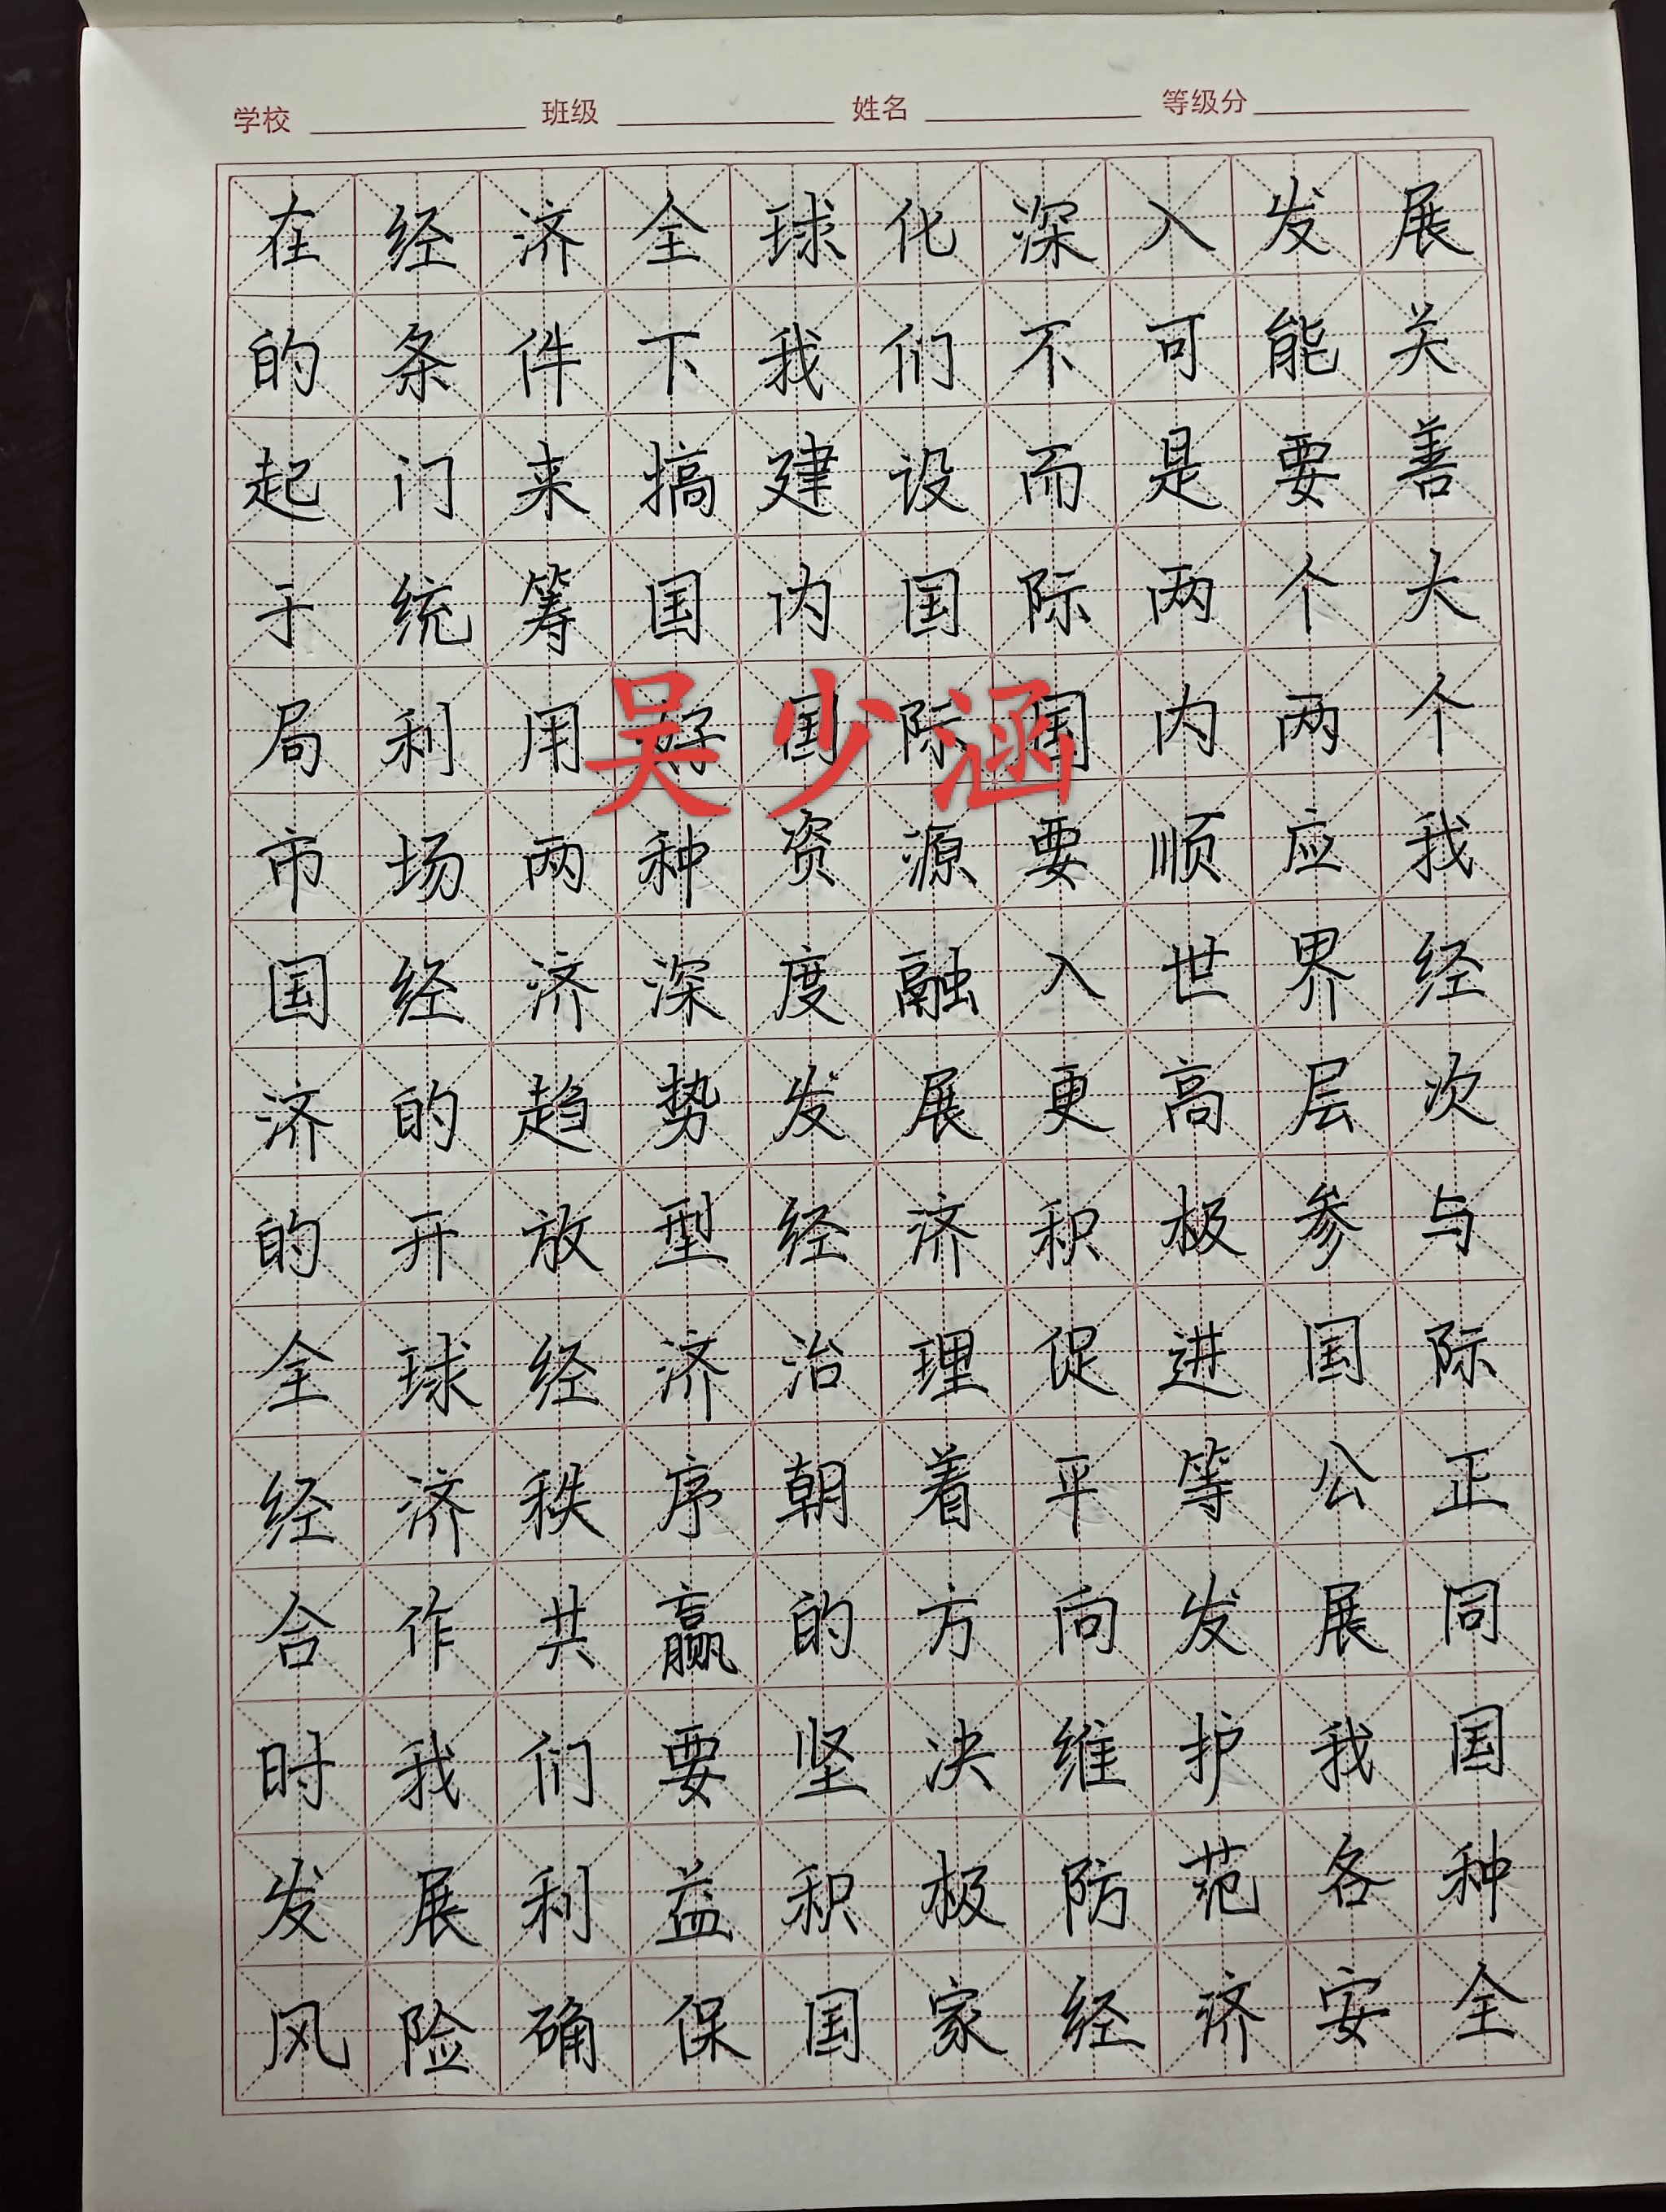 学校 班级 姓名 等级分
在经济全球化深入发展
的条件下我们不可能关
起门来搞建设而是要善
于统筹国内国际两个大
局利用好国际国内两个
吴少涵
市场两种资源要顺应我
国经济深度融入世界经
济的趋势发展更高层次
的开放型经济积极参与
全球经济治理促进国际
经济秩序朝着平等公正
合作共赢的方向发展同
时我们要坚决维护我国
发展利益积极防范各种
风险确保国家经济安全